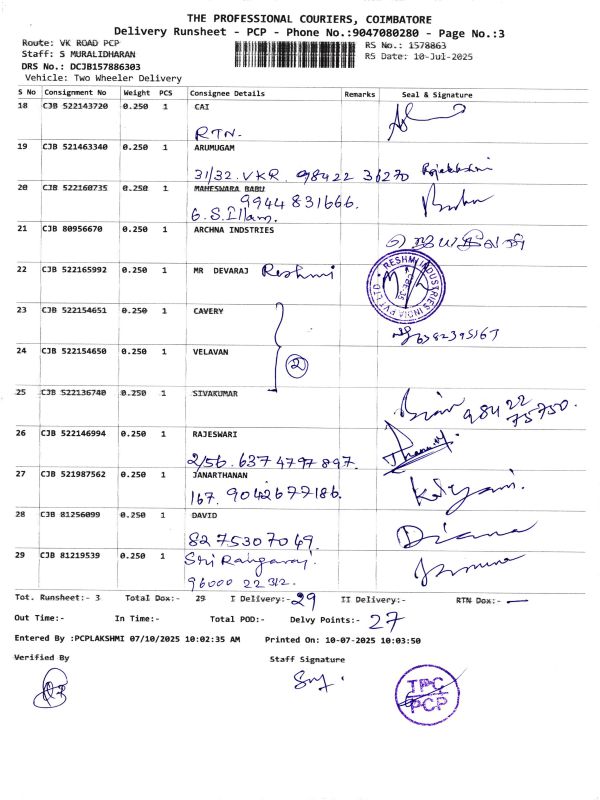 THE PROFESSIONAL COURIERS, COIMBATORE
Delivery Runsheet - PCP - Phone No.:9047080280 - Page No.:3
Route: VK ROAD PCP
Staff: S MURALIDHARAN
DRS No.: DCJB157886303
Vehicle: Two Wheeler Delivery
RS No.: 1578863
RS Date: 10-Jul-2025
S No Consignment No Weight PCS Consignee Details Remarks Seal & Signature
18 CJB 522143720 0.250 1 CAI
RTN.
19 CJB 521463340 0.250 1 ARUMUGAM
31/32. VKR. 98422 36270 Rajalakshmi
20 CJB 522160735 0.250 1 MAHESWARA BABU
9944831666.
6. S. Illam.
21 CJB 80956670 0.250 1 ARCHNA INDSTRIES
22 CJB 522165992 0.250 1 MR DEVARAJ Reshmi
RESHMI INDUSTRIES INDIA PVT LTD
CBE-35
23 CJB 522154651 0.250 1 CAVERY
6382395167
24 CJB 522154650 0.250 1 VELAVAN
2
25 CJB 522136740 0.250 1 SIVAKUMAR
98422 75750.
26 CJB 522146994 0.250 1 RAJESWARI
2/56. 637 4797 897.
27 CJB 521987562 0.250 1 JANARTHANAN
167. 9042677186. Kalyani.
28 CJB 81256099 0.250 1 DAVID
8275307049. Diana
29 CJB 81219539 0.250 1
Sri Rangaraj.
96000 22312.
Tot. Runsheet:- 3 Total Dox:- 29 I Delivery:- 29 II Delivery:- RTN Dox:- —
Out Time:- In Time:- Total POD:- Delvy Points:- 27
Entered By :PCPLAKSHMI 07/10/2025 10:02:35 AM Printed On: 10-07-2025 10:03:50
Verified By Staff Signature
TPC
PCP